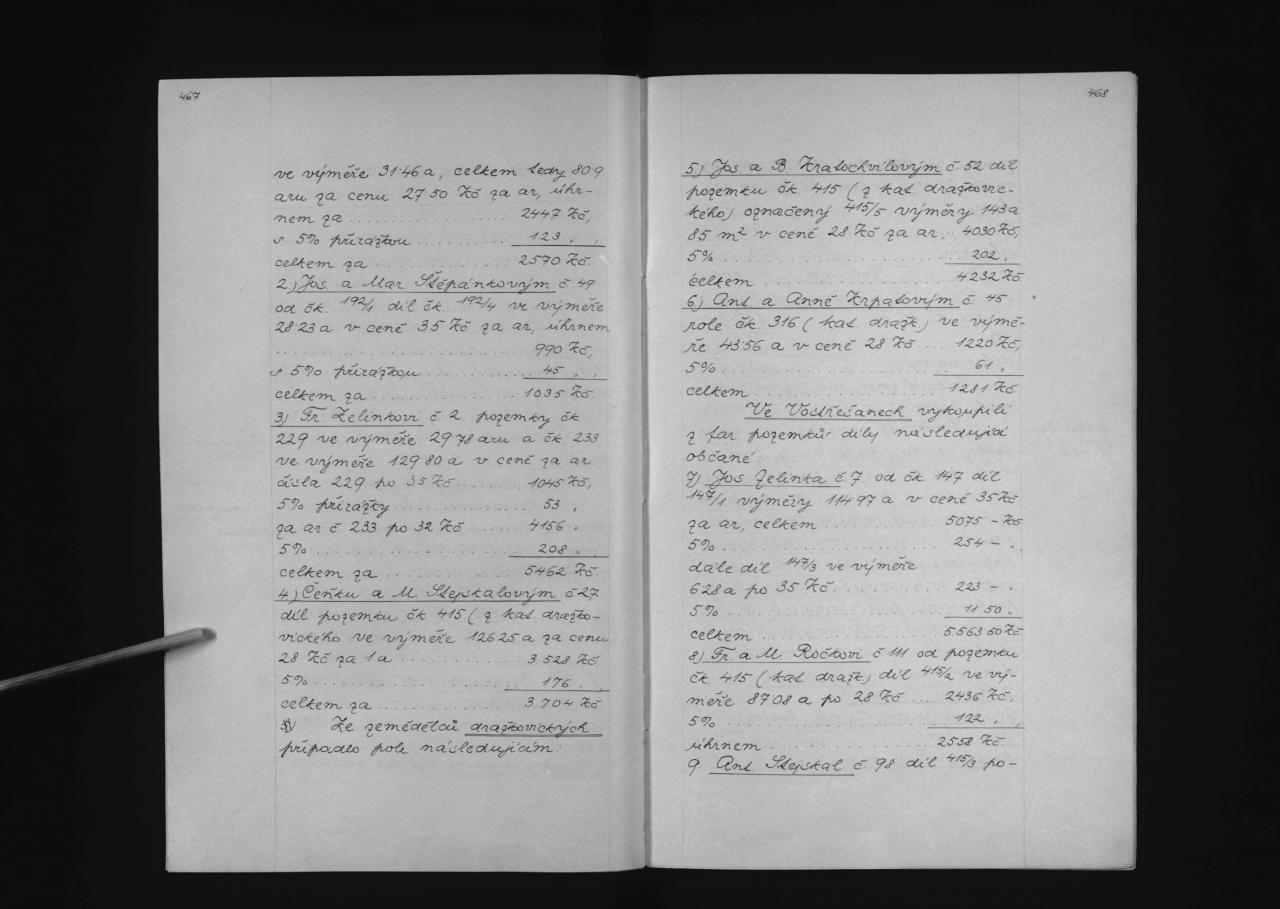 467
ve výměře 31·46 a, celkem tedy 80 9
aru za cenu 27·50 Kč za ar, úhr-
nem za ............ 2447 Kč,
s 5% přirážkou ........ 123 . ,
celkem za ............ 2570 Kč.
2.) Jos. a Mar Štěpánkovým č 49
od čk. 192/1 díl čk. 192/4 ve výměře
28·23 a v ceně 35 Kč za ar, úhrnem
............ 990 Kč,
s 5% přirážkou ........ 45 . ,
celkem za ............ 1035 Kč.
3) Fr. Zelinkovi č 2 pozemky čk
229 ve výměře 29 78 aru a čk 233
ve výměře 129 80 a v ceně za ar
čísla 229 po 35 Kč ....... 1045 Kč,
5% přirážky ............ 53 .
za ar č. 233 po 32 Kč ...... 4156 .
5% ............ 208 . .
celkem za ............ 5462 Kč.
4) Čeňku a M Stejskalovým č 27
díl pozemku čk 415 ( z kat. dražko-
vického ve výměře 126 25 a za cenu
28 Kč za 1 a ............ 3.528 Kč
5% ............ 176 . .
celkem za ............ 3.704 Kč
Ze zemědělců dražkovických
připadlo pole následujícím:
468
5) Jos a B Kratochvílovým č. 52 díl
pozemku čk. 415 ( z kat. dražkovic-
kého) označený 415/5 výměry 143 a
85 m² v ceně 28 Kč za ar .. 4030 Kč,
5% ............ 202 .
celkem ............ 4232 Kč
6) Ant a Anně Krpatovým č 45
role čk. 316 ( kat. dražk.) ve výmě-
ře 43·56 a v ceně 28 Kč .... 1220 Kč,
5% ............ 61 .
celkem ............ 1281 Kč
Ve Vostřešanech vykoupili
z far pozemků díly následující
občané:
7) Jos Zelinka č. 7 od čk 147 díl
147/1 výměry 114 97 a v ceně 35 Kč
za ar, celkem ............ 5075 – Kč
5% ............ 254 – .
dále díl 147/3 ve výměře
6 28 a po 35 Kč ............ 223 – .
5% ............ 11 50 .
celkem ............ 5.563 50 Kč
8) Fr. a M Ročkovi č 111 od pozemku
čk. 415 ( kat dražk) díl 415/2 ve vý-
měře 87 08 a po 28 Kč .... 2436 Kč,
5% ............ 122 . ,
úhrnem ............ 2558 Kč.
9 Ant Stejskal č 98 díl 415/3 po-